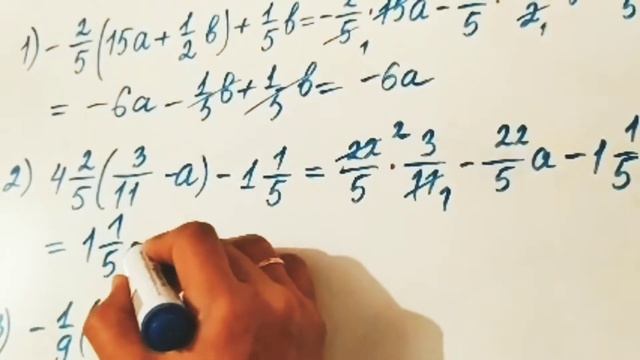 1) - 2/5 (15a + 1/2 b) + 1/5 b = - 2/5 · 15a - /5 · 2, 1 5
= -6a - 1/5 b + 1/5 b = -6a
2) 4 2/5 (3/11 - a) - 1 1/5 = 22 2/5 · 3/11 1 - 22/5 a - 1 1/5
= 1 1/5
3) - 1/9 (